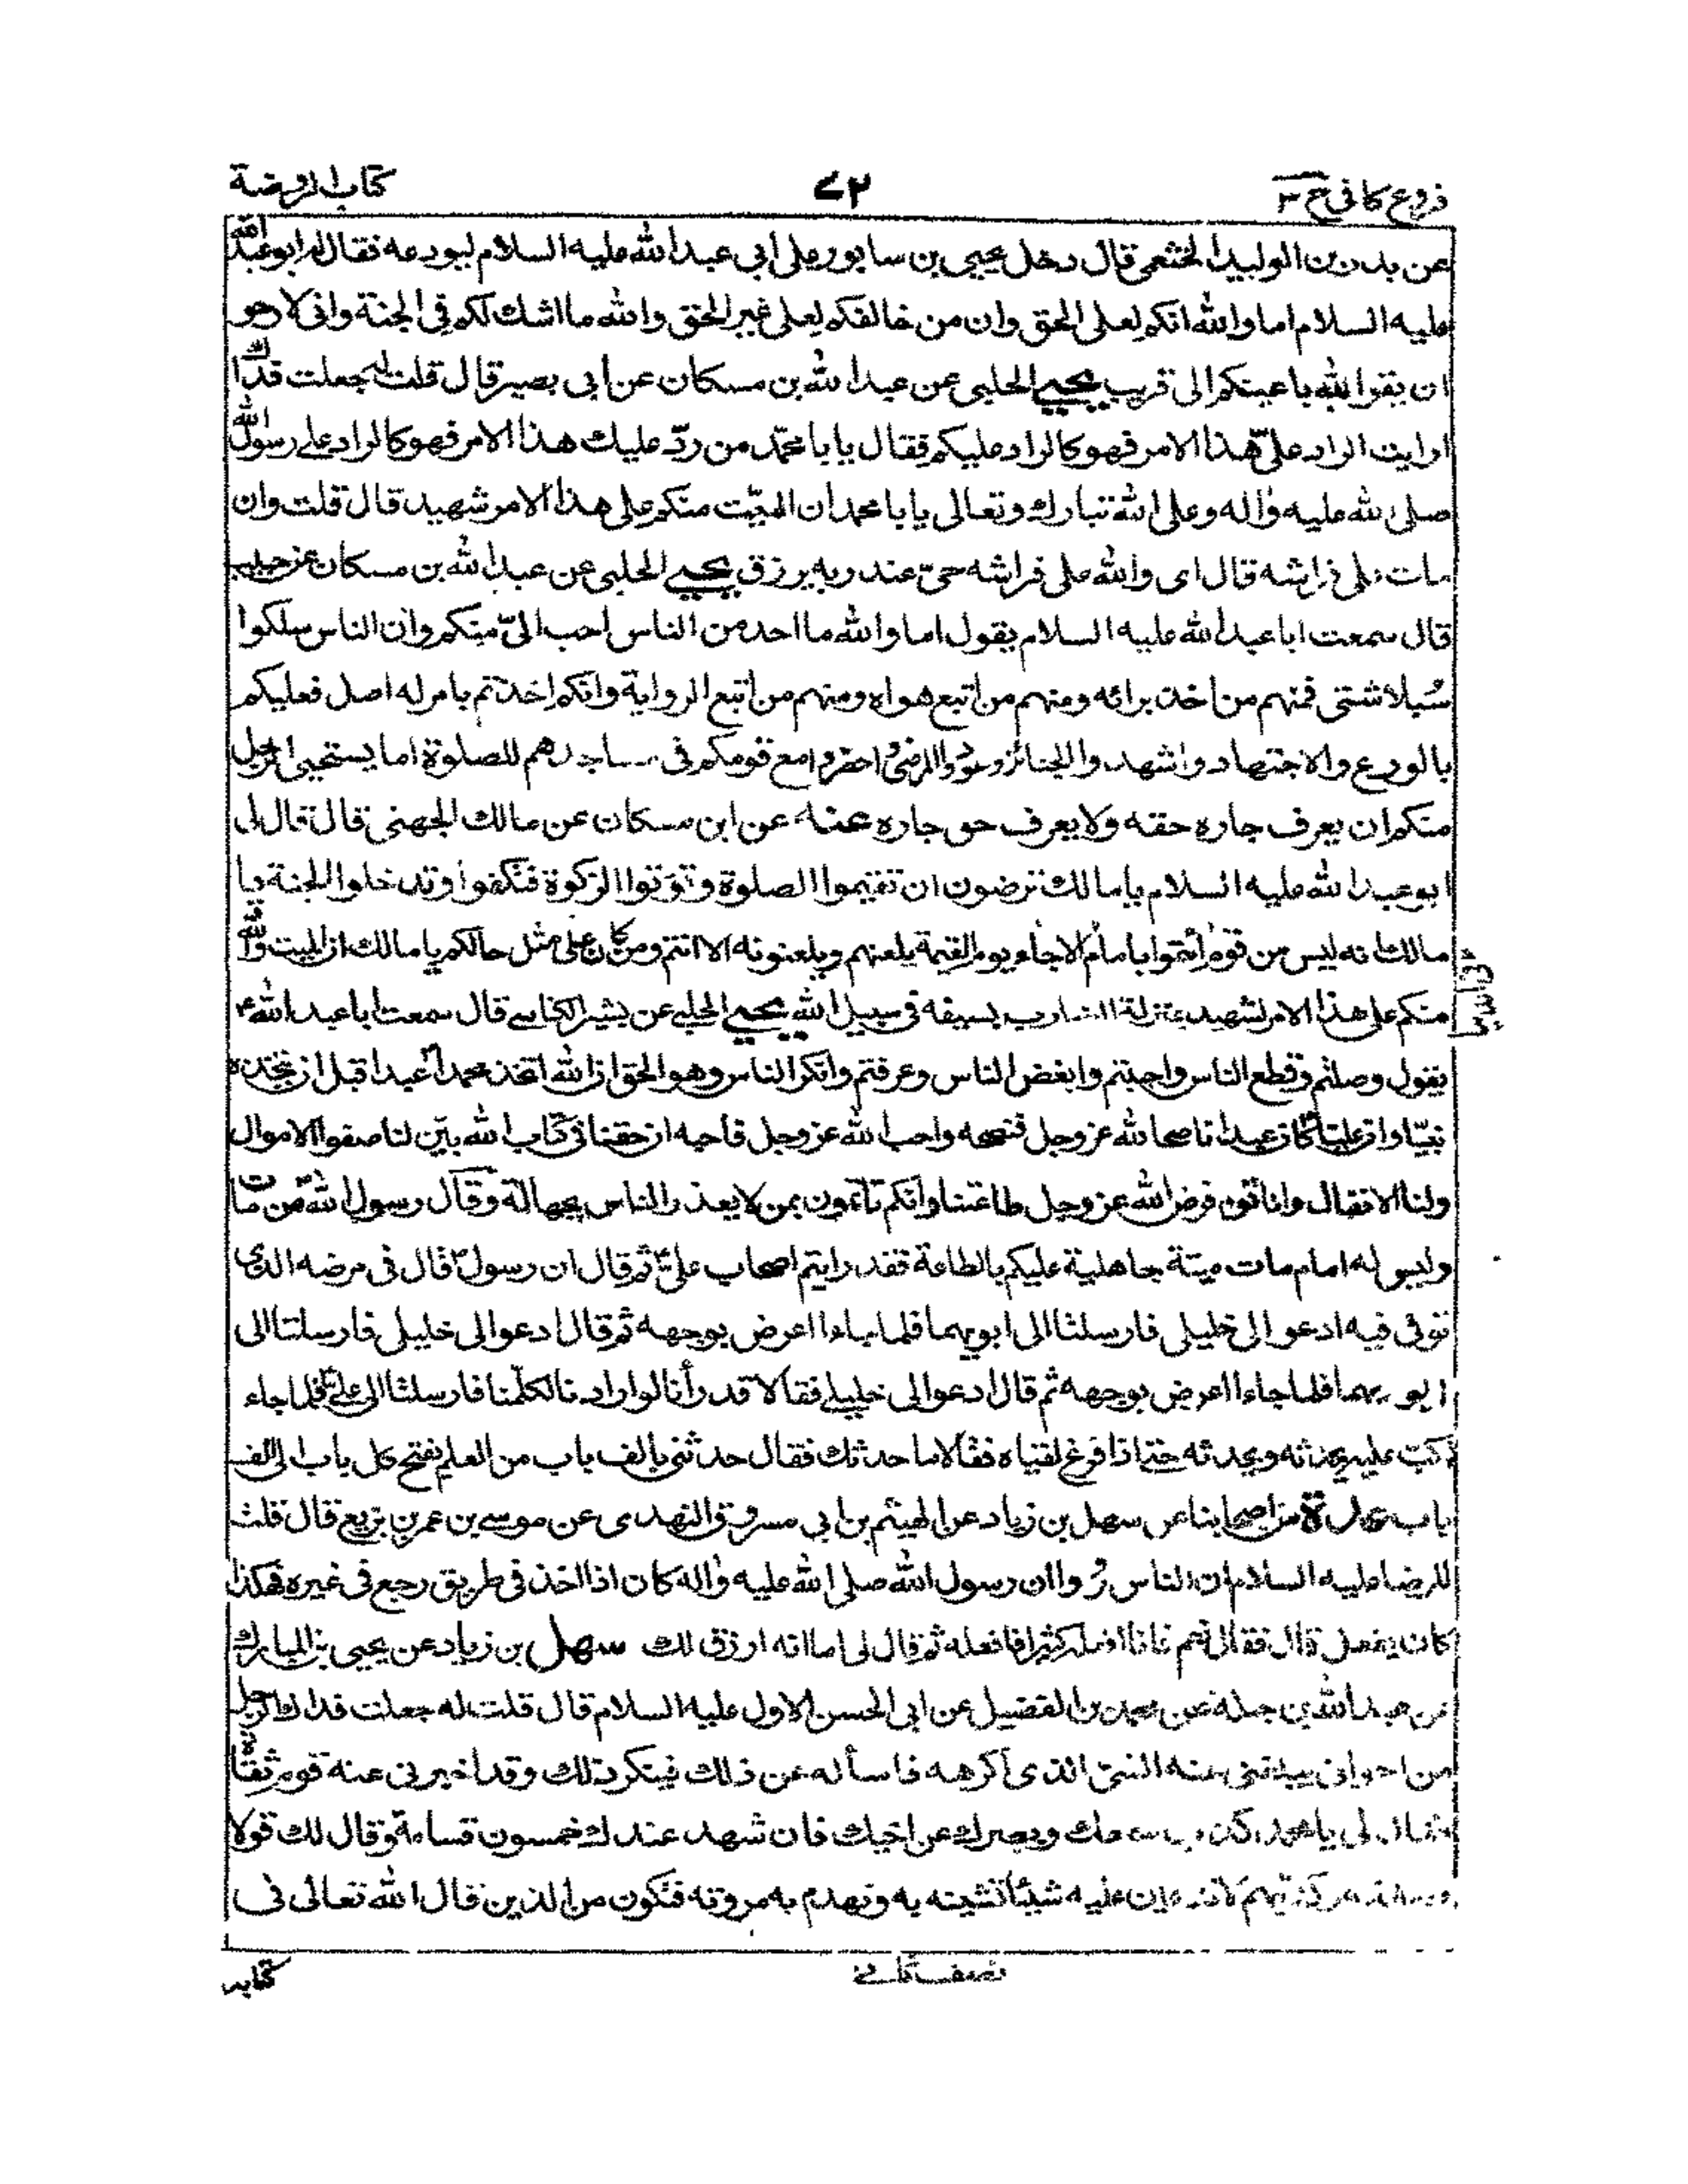 فروع کافی ج ۳
۷۲
کتاب الروضة
عن بدر بن الولید الخثعمی قال دخل یحیی بن سابور علی ابی عبد الله علیه السلام لیودعه فقال له ابو عبد الله
علیه السلام اما والله انکم لعلی الحق وان من خالفکم لعلی غیر الحق والله ما اشك لکم فی الجنة وانی لارجو
ان یقر الله باعینکم الی قریب یحیی الحلبی عن عبد الله بن مسکان عن ابی بصیر قال قلت له جعلت فداك
ارایت الراد علیّ هذا الامر فهو کالراد علیکم فقال یابا محمّد من ردّ علیك هذا الامر فهو کالراد علی رسول الله
صلی الله علیه واله وعلی الله تبارك وتعالی یابا محمد ان المیّت منکم علی هذا الامر شهید قال قلت وان
مات علی فراشه قال ای والله علی فراشه حیّ عند ربه یرزق یحیی الحلبی عن عبد الله بن مسکان عن حبیب
قال سمعت ابا عبد الله علیه السلام یقول اما والله ما احد من الناس احب الیّ منکم وان الناس سلکوا
سُبلا شتی فمنهم من اخذ برائه ومنهم من اتبع هواه ومنهم من اتبع الروایة وانکم اخذتم بامر له اصل فعلیکم
بالورع والاجتهاد واشهدوا الجنائز وعودوا المرضی واحضروا مع قومکم فی مساجدهم للصلوة اما یستحیی الرجل
منکم ان یعرف جاره حقه ولا یعرف حق جاره عنه عن ابن مسکان عن مالك الجهنی قال قال لی
ابو عبد الله علیه السلام یا مالك ترضون ان تقیموا الصلوة وتؤتوا الزکوة فتکفوا وتدخلوا الجنة یا
مالك انه لیس من قوم ائتموا بامام الا جاء یوم القیمة یلعنهم ویلعنونه الا انتم ومن کان علی مثل حالکم یا مالك ان المیت والله
منکم علی هذا الامر لشهید بمنزلة الضارب بسیفه فی سبیل الله یحیی الحلبی عن بشیر الکناسی قال سمعت ابا عبد الله ع
یقول وصلتم وقطع الناس واحببتم وابغض الناس وعرفتم وانکر الناس وهو الحق ان الله اتخذ محمدا عبدا قبل ان یتخذه
نبیّا وان علیا کان عبدا ناصحا لله عز وجل فنصحه واحب الله عز وجل فاحبه ان حقنا فی کتاب الله بیّن لنا صفو الاموال
ولنا الانفال وانا قوم فرض الله عز وجل طاعتنا وانکم تأتمون بمن لا یعذر الناس بجهالة وقال رسول الله ص من مات
ولیس له امام مات میتة جاهلیة علیکم بالطاعة فقد رایتم اصحاب علیّ ثم قال ان رسول ص قال فی مرضه الذی
توفی فیه ادعو الی خلیلی فارسلتا الی ابویهما فلما جاءا اعرض بوجهه ثم قال ادعو الی خلیلی فارسلتا الی
ابویهما فلما جاءا اعرض بوجهه ثم قال ادعوا لی خلیلی فقالا قد رأنا لو ارادنا لکلّمنا فارسلتا الی علیّ فلما جاء
اکبّ علیه یحدثه ویحدثه حتی اذا فرغ لقیاه فقالا ما حدثك فقال حدثنی بالف باب من العلم یفتح کل باب الی الف
باب عدة من اصحابنا عن سهل بن زیاد عن الهیثم بن ابی مسروق النهدی عن موسی بن عمر بن بزیع قال قلت
للرضا علیه السلام ان الناس رووا ان رسول الله صلی الله علیه واله کان اذا اخذ فی طریق رجع فی غیره فهکذا
کان یفعل قال فقال نعم فانا افعله کثیرا فافعله ثم قال لی اما انه ارزق لك سهل بن زیاد عن یحیی بن المبارك
عن عبد الله بن جبلة عن محمد بن الفضیل عن ابی الحسن الاول علیه السلام قال قلت له جعلت فداك الرجل
من اخوانی یبلغنی عنه الشئ الذی اکرهه فاسأله عن ذلك فینکر ذلك وقد اخبرنی عنه قوم ثقات
فقال لی یا محمد کذب سمعك وبصرك عن اخیك فان شهد عندك خمسون قسامة وقال لك قولا
فصدقه وکذبهم لا تذیعن علیه شیئا تشینه به وتهدم به مروته فتکون من الذین قال الله تعالی فی
کتابه